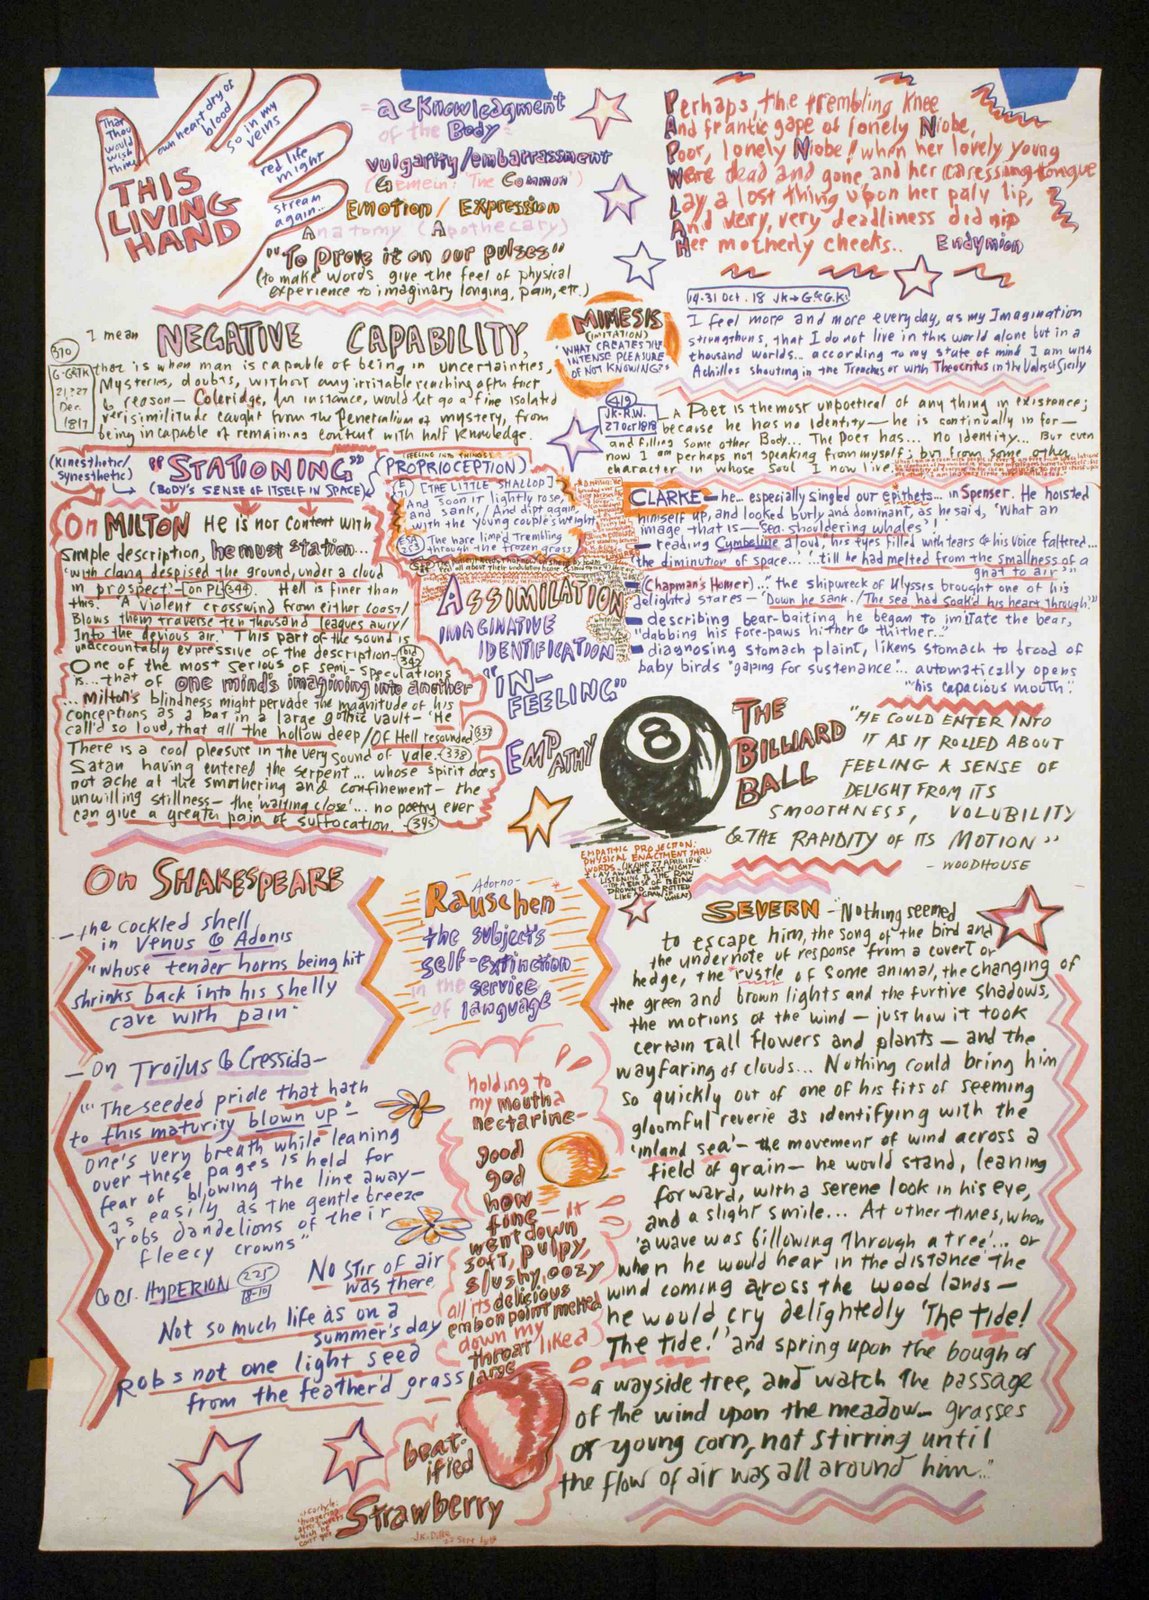 That
Thou
would
wish thine
own heart dry of
blood
So in my
veins
red life
might
stream
again...
THIS
LIVING
HAND
acknowledgment
of the Body
vulgarity/embarrassment
(Gemein: The Common)
Emotion / Expression
Anatomy (Apothecary)
"To prove it on our pulses"
(to make words give the feel of physical
experience to imaginary longing, pain, etc.)
Perhaps, the trembling knee
And frantic gape of lonely Niobe,
Poor, lonely Niobe! when her lovely young
Were dead and gone and her caressing tongue
Lay a lost thing upon her paly lip,
And very, very deadliness did nip
Her motherly cheeks..
Endymion
I mean NEGATIVE CAPABILITY,
370
G+GATK
21, ?27
Dec.
1817
that is when man is capable of being in uncertainties,
Mysteries, doubts, without any irritable reaching after fact
& reason — Coleridge, for instance, would let go a fine isolated
verisimilitude caught from the Penetralium of mystery, from
being incapable of remaining content with half knowledge.
MIMESIS
(IMITATION)
"WHAT CREATES THE
INTENSE PLEASURE
OF NOT KNOWING?"
14-31 Oct. 18 JK→G&G.K.
I feel more and more everyday, as my Imagination
strengthens, that I do not live in this world alone but in a
thousand worlds... according to my state of mind I am with
Achilles shouting in the Trenches or with Theocritus in the Vales of Sicily
419
JK-R.W.
27 Oct 1818
— A Poet is the most unpoetical of any thing in existence;
because he has no identity — he is continually in for —
and filling some other Body... The Poet has... no identity... But even
now I am perhaps not speaking from myself; but from some other
character in whose Soul I now live.
(Kinesthetic/
Synesthetic)
"STATIONING"
(BODY'S SENSE OF ITSELF IN SPACE)
(FEELING INTO THINGS)
PROPRIOCEPTION)
[THE LITTLE SHALLOP]
And soon it lightly rose,
and sank, / And dipt again,
with the young couple's weight
ESA
253
The hare limp'd trembling
through the frozen grass
On MILTON He is not content with
simple description, he must station...
"with clang despised the ground, under a cloud
in prospect" — [on PL] 344. Hell is finer than
this. "A violent crosswind from either coast/
Blows them traverse ten thousand leagues awry/
Into the devious air." This part of the sound is
unaccountably expressive of the description — ibid 342
One of the most serious of semi-speculations
is... that of one mind's imagining into another
... Milton's blindness might pervade the magnitude of his
conceptions as a bat in a large gothic vault — 'He
call'd so loud, that all the hollow deep / Of Hell resounded' 337
There is a cool pleasure in the very sound of vale. 338
Satan having entered the serpent... whose spirit does
not ache at the smothering and confinement — the
unwilling stillness — the 'waiting close'... no poetry ever
can give a greater pain of suffocation. 345
ASSIMILATION
IMAGINATIVE
IDENTIFICATION
"IN-
FEELING"
EMPATHY
CLARKE — he... especially singled out epithets... in Spenser. He hoisted
himself up, and looked burly and dominant, as he said, "What an
image that is — sea-shouldering whales"!
— reading Cymbeline aloud, his eyes filled with tears & his voice faltered...
'the diminution of space... ' 'till he had melted from the smallness of a
gnat to air'"
— (Chapman's Homer)... the shipwreck of Ulysses brought one of his
delighted stares — 'Down he sank. / The sea had soak'd his heart through.'"
— describing bear-baiting he began to imitate the bear,
"dabbing his fore-paws hither & thither..."
— diagnosing stomach plaint, likens stomach to brood of
baby birds "gaping for sustenance"... automatically opens
"his capacious mouth."
8
THE
BILLIARD
BALL
"HE COULD ENTER INTO
IT AS IT ROLLED ABOUT
FEELING A SENSE OF
DELIGHT FROM ITS
SMOOTHNESS, VOLUBILITY
& THE RAPIDITY OF ITS MOTION"
- WOODHOUSE
EMPATHIC PROJECTION:
PHYSICAL ENACTMENT THRU
WORDS. (JK/JHR 27 APRIL 1818:
I LAY AWAKE LAST NIGHT—
LISTENING TO THE RAIN
WITH A SENSE OF BEING
DROWN'D & ROTTED
LIKE A GRAIN OF
WHEAT)
On SHAKESPEARE
— the cockled shell
in Venus & Adonis
"whose tender horns being hit
shrinks back into his shelly
cave with pain"
— On Troilus & Cressida —
"'The seeded pride that hath
to this maturity blown up' —
One's very breath while leaning
over these pages is held for
fear of blowing the line away —
as easily as the gentle breeze
robs dandelions of their
fleecy crowns"
& cf. HYPERION 225
8-10
No stir of air
was there
Not so much life as on a
summer's day
Robs not one light seed
from the feather'd grass
Adorno-
Rauschen
the subject's
self-extinction
in the service
of language
holding to
my mouth a
nectarine—
good
god
how
fine — It
went down
soft, pulpy,
slushy, oozy
all its delicious
embonpoint melted
down my
throat like a
large
beat-
ified
Strawberry
JK-Dilke
22 Sept 1819
cf Carlyle:
'hungering
after sweets
which he
can't get'
SEVERN — "Nothing seemed
to escape him, the song of the bird and
the undernote of response from a covert or
hedge, the rustle of some animal, the changing of
the green and brown lights and the furtive shadows,
the motions of the wind — just how it took
certain tall flowers and plants — and the
wayfaring of clouds... Nothing could bring him
so quickly out of one of his fits of seeming
gloomful reverie as identifying with the
'inland sea' — the movement of wind across a
field of grain — he would stand, leaning
forward, with a serene look in his eye,
and a slight smile... At other times, when
'a wave was billowing through a tree'... or
when he would hear in the distance the
wind coming across the wood lands —
he would cry delightedly 'The Tide!
The Tide!' and spring upon the bough of
a wayside tree, and watch the passage
of the wind upon the meadow — grasses
or young corn, not stirring until
the flow of air was all around him..."